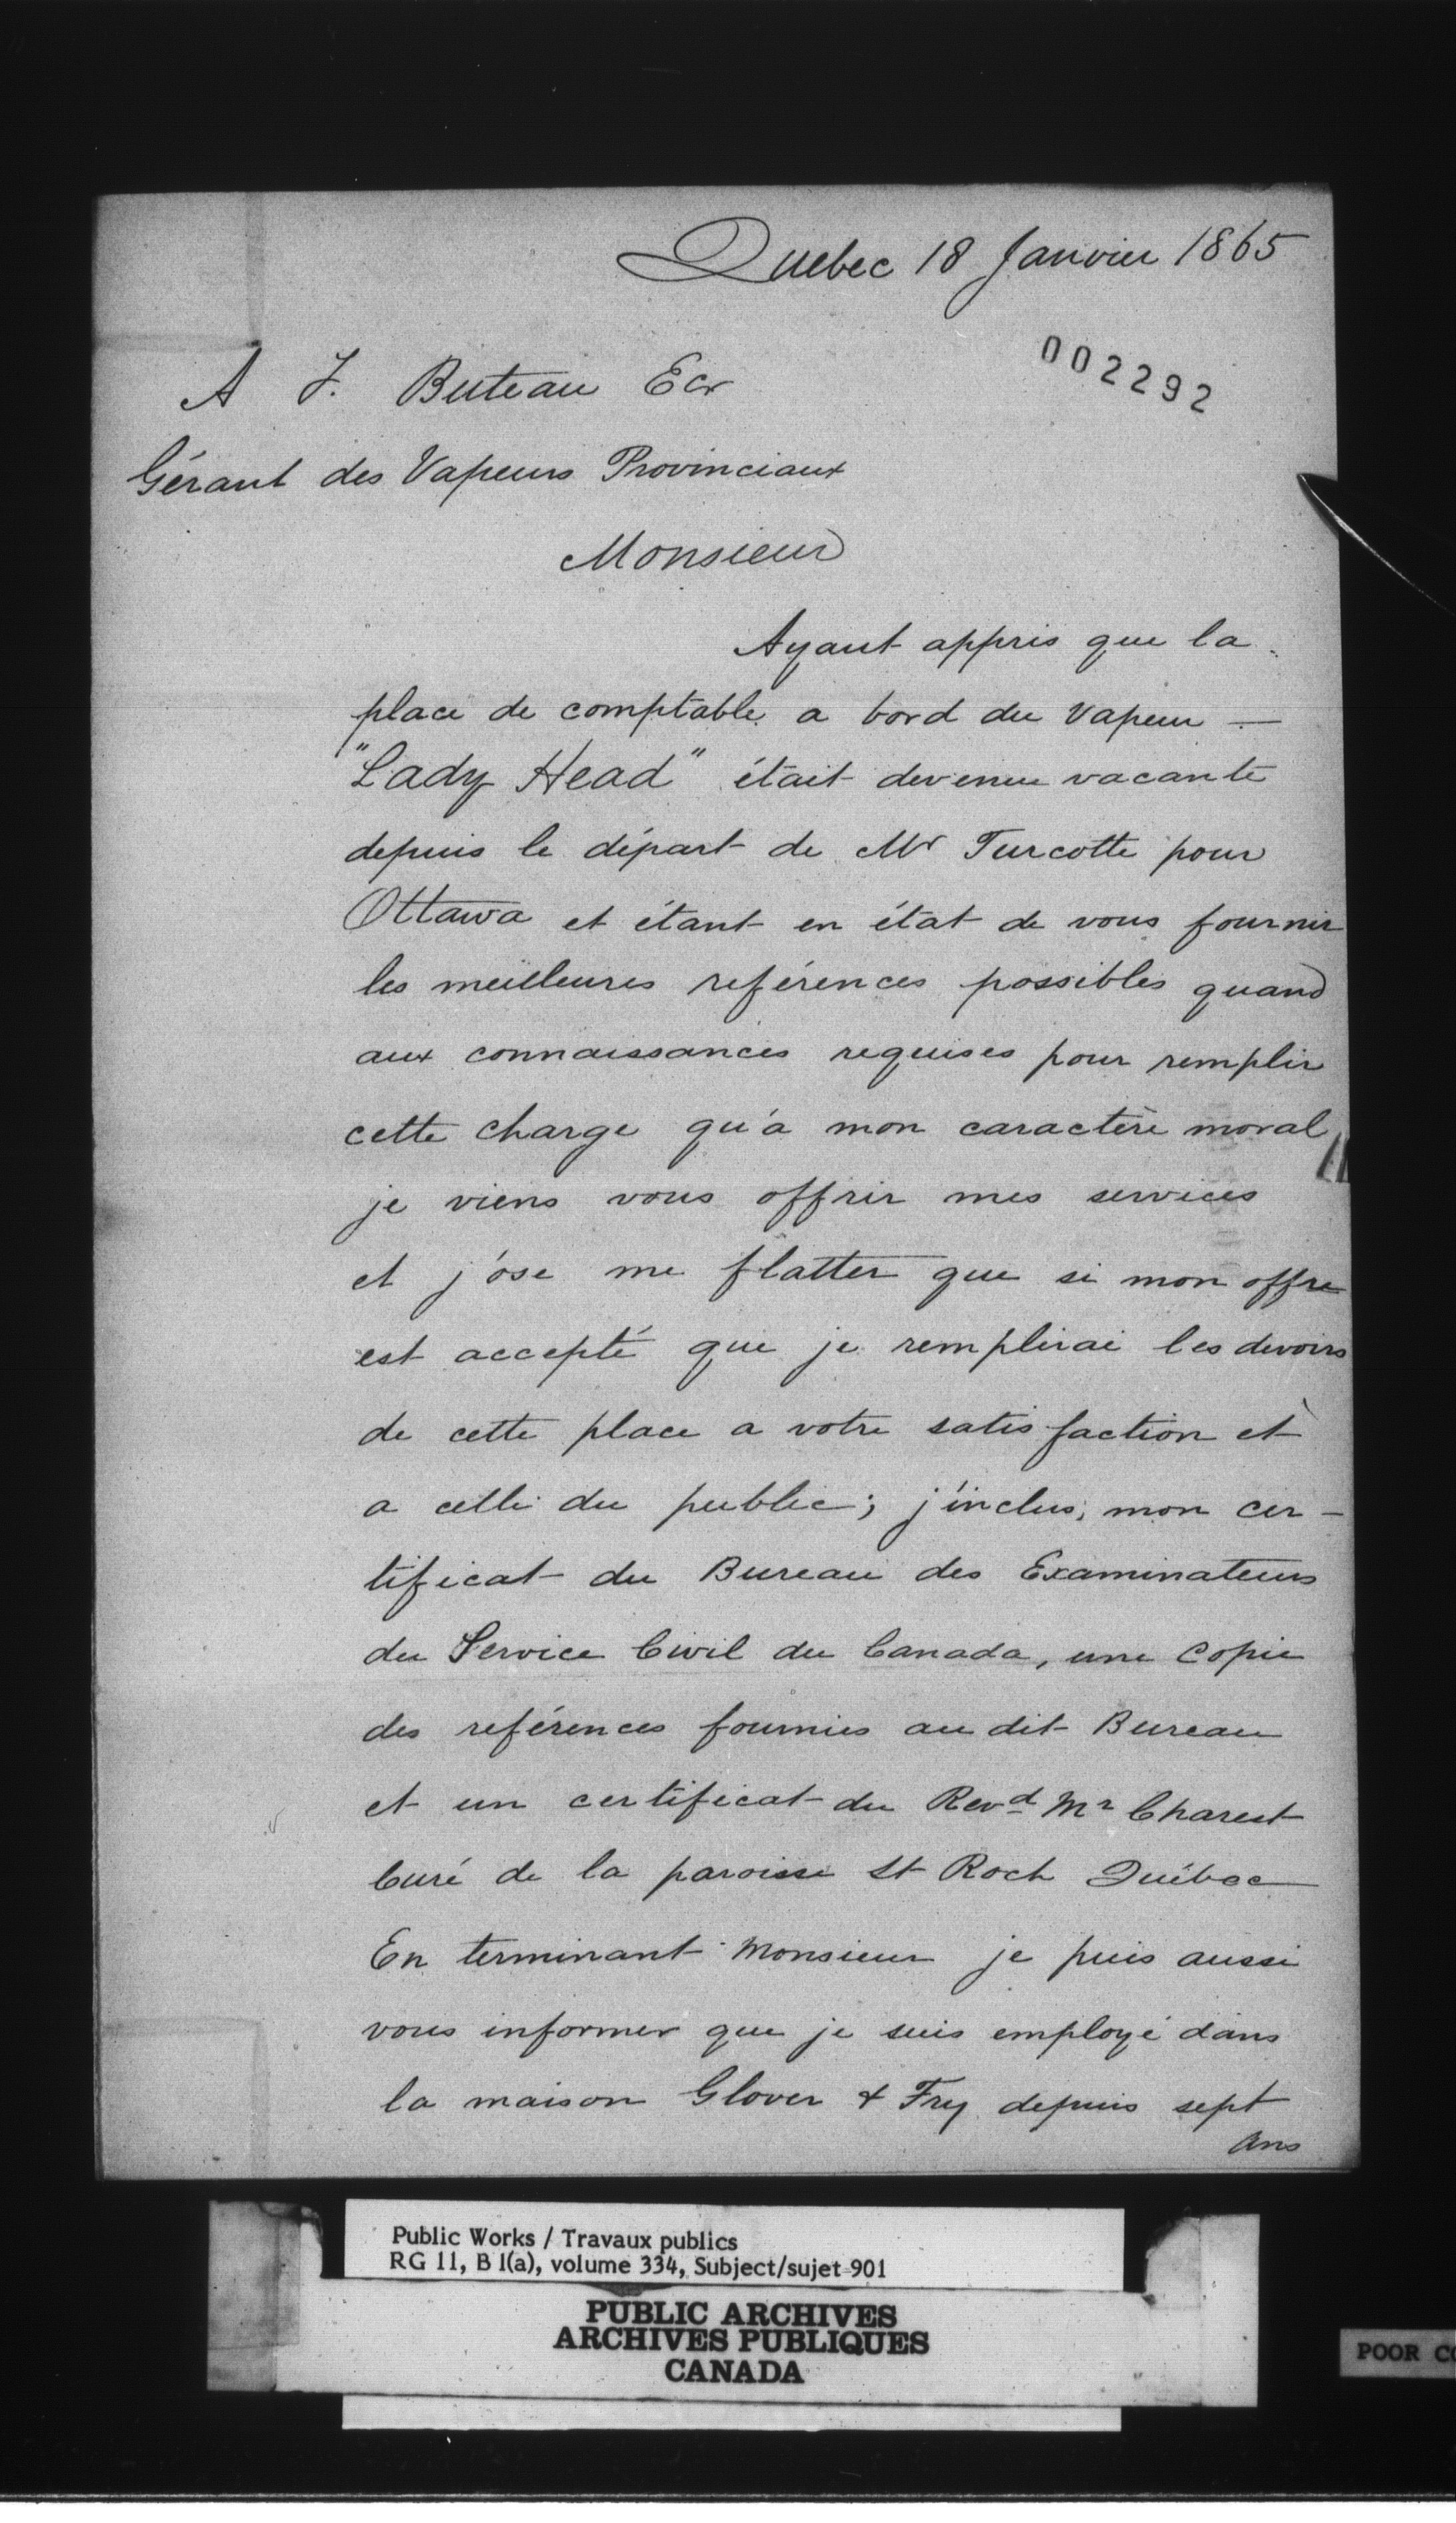 Quebec 18 Janvier 1865
002292
A F. Buteau Ecr
Gérant des Vapeurs Provinciaux
Monsieur
Ayant appris que la
place de comptable a bord du Vapeur —
"Lady Head" était devenue vacante
depuis le départ de Mr Turcotte pour
Ottawa et étant en état de vous fournir
les meilleures références possibles quand
aux connaissances requises pour remplir
cette charge qu'a mon caractère moral
je viens vous offrir mes services
et j'ose me flatter que si mon offre
est accepté que je remplirai les devoirs
de cette place a votre satisfaction et
a celle du public; j'inclus, mon cer-
tificat du Bureau des Examinateurs
du Service Civil du Canada, une Copie
des références fournies au dit Bureau
et un certificat du Revd Mr Charest
Curé de la paroisse St Roch Québec
En terminant Monsieur je puis aussi
vous informer que je suis employé dans
la maison Glover & Fry depuis sept
ans
Public Works / Travaux publics
RG 11, B 1(a), volume 334, Subject/sujet 901
PUBLIC ARCHIVES
ARCHIVES PUBLIQUES
CANADA
POOR CO